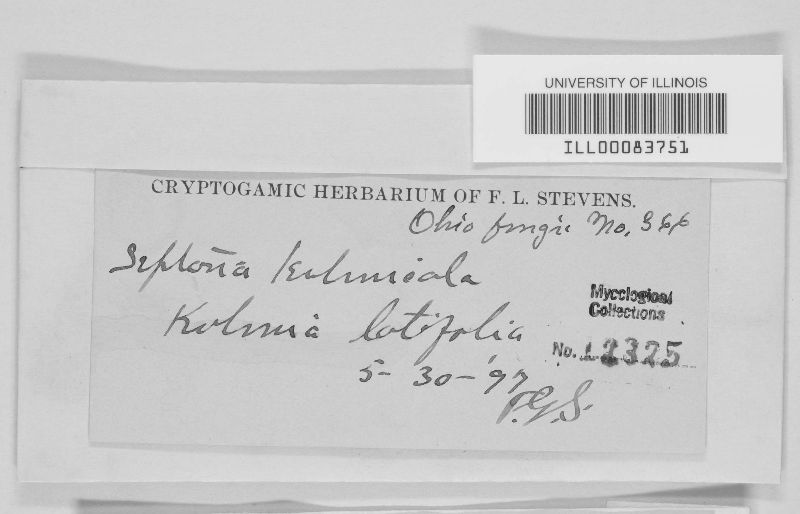 UNIVERSITY OF ILLINOIS
ILL00083751
CRYPTOGAMIC HERBARIUM OF F. L. STEVENS.
Ohio fungi No.
Septoria kalmicola
Kalmia latifolia
Mycological
Collections
No. 12325
5-30-'97